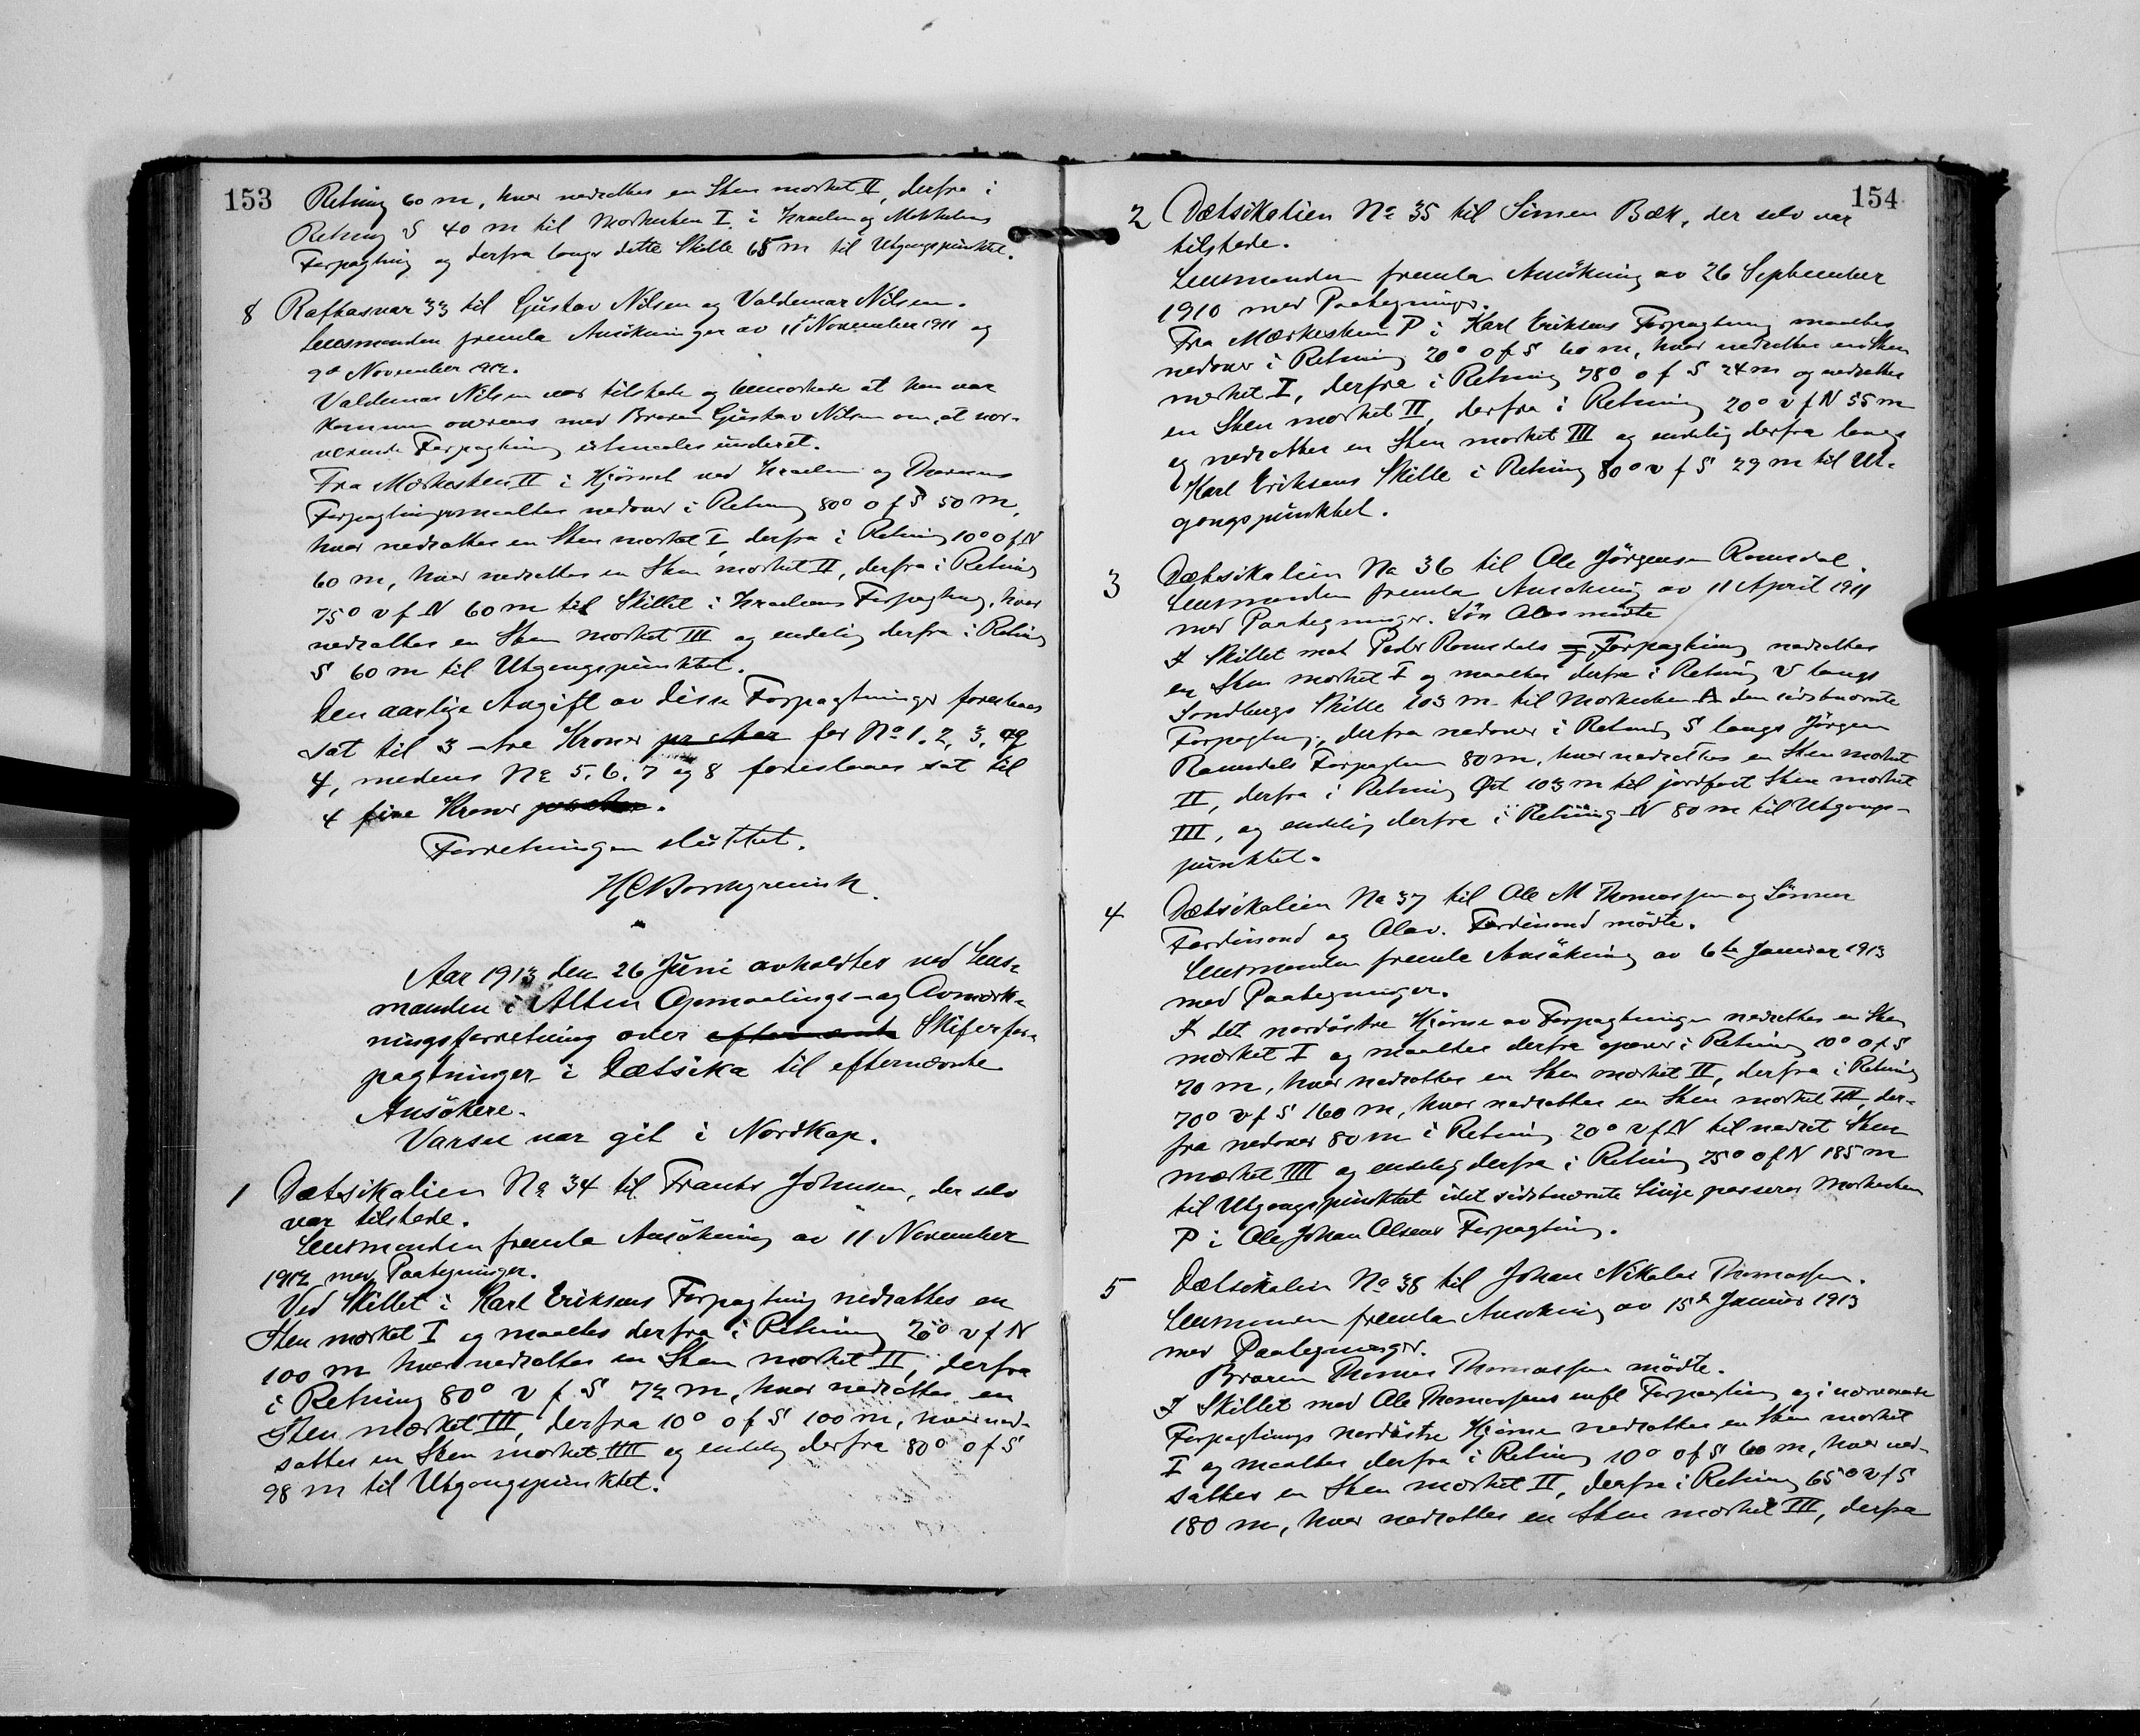 153
Retning 60 m, hvor nedsattes en Sten mærket II, derfra i
Retning S 40 m til Mærkesten I i Israelsens og Mikkelsens
Forpagtning og derfra langs dette Skille 65 m til Utgangspunktet.
8 Raftasvar 33 til Gustav Nilsen og Valdemar Nilsen.
Lensmanden fremla Ansøkninger av 11 November 1911 og
9de November 1912.
Valdemar Nilsen var tilstede og bemærkede at han var
kommen overens med Broren Gustav Nilsen om, at nær-
værende Forpagtning utmaales underet.
Fra Mærkesten II i Hjørnet ved Israelsens og
Forpagtninger maaltes nedover i Retning 80° o f S 50 m,
hvor nedsattes en Sten mærket I, derfra i Retning 10° o f N
60 m, hvor nedsattes en Sten mærket II, derfra i Retning
75° v f N 60 m til Skillet i Israelsens Forpagtning, hvor
nedsattes en Sten mærket III og endelig derfra i Retning
S 60 m til Utgangspunktet.
Den aarlige Avgift av disse Forpagtninger foreslaaes
sat til 3 - tre Kroner pr Aar for No 1, 2, 3, og
4, medens No 5, 6, 7 og 8 foreslaaes sat til
4 fire Kroner pr Aar.
Forretningen sluttet.
Aar 1913 den 26 Juni avholdtes ved Lens-
manden i Alten Opmaalings- og Avmærk-
ningsforretning over efternævnte Skiferfor-
pagtninger i Dætsika til efternævnte
Ansökere.
Varsel var git i Nordkap.
1 Dætsikalien No 34 til Frants Johnsen, der selv
var tilstede.
Lensmanden fremla Ansökning av 11 November
1912 med Paategninger.
Ved Skillet i Karl Eriksens Forpagtning nedsattes en
Sten mærket I og maaltes derfra i Retning 20° v f N
100 m hvor nedsattes en Sten mærket II, derfra
i Retning 80° v f S 72 m, hvor nedsattes en
Sten mærket III, derfra 10° o f S 100 m, hvor ned-
sattes en Sten mærket IIII og endelig derfra 80° o f S
98 m til Utgangspunktet.
154
2 Dætsikalien No 35 til Simen Bæk, der selv var
tilstede.
Lensmanden fremla Ansökning av 26 September
1910 med Paategninger.
Fra Mærkesten P i Karl Eriksens Forpagtning maaltes
nedover i Retning 20° o f S 60 m, hvor nedsattes en Sten
mærket I, derfra i Retning 78° o f S 24 m og nedsattes
en Sten mærket II, derfra i Retning 20° v f N 55 m
og nedsattes en Sten mærket III og endelig derfra langs
Karl Eriksens Skille i Retning 80° v f S 29 m til Ut-
gangspunktet.
3 Dætsikalien No 36 til Ole Jörgensen Romsdal.
Lensmanden fremla Ansökning av 11 April 1911
med Paategninger. Søn Olav mödte
I Skillet mot Peder Romsdals Forpagtning nedsattes
en Sten mærket I og maaltes derfra i Retning V langs
Sondbergs Skille 103 m til Mærkesten A den sidstnævnte
Forpagtning, derfra nedover i Retning S langs Jörgen
Romsdals Forpagtning 80 m, hvor nedsattes en Sten mærket
II, derfra i Retning Öst 103 m til jordfast Sten mærket
III, og endelig derfra i Retning N 80 m til Utgangs-
punktet.
4 Dætsikalien No 37 til Ole M Thomassen og Sönner
Ferdinand og Olav. Ferdinand mödte.
Lensmanden fremla Ansökning av 6te Januar 1913
med Paategninger.
I det nordöstre Hjörne av Forpagtningen nedsattes en Sten
mærket I og maaltes derfra opover i Retning 10° o f S
70 m, hvor nedsattes en Sten mærket II, derfra i Retning
70° v f S 160 m, hvor nedsattes en Sten mærket III, der-
fra nedover 80 m i Retning 20° v f N til nedsat Sten
mærket IIII og endelig derfra i Retning 75° o f N 185 m
til Utgangspunktet idet sidstnævnte Linje passerer Mærkesten
P i Ole Johan Olsens Forpagtning.
5 Dætsikalien No 38 til Johan Nikolai Thomassen.
Lensmanden fremla Ansökning av 15de Januar 1913
med Paategninger.
Broren Thomas Thomassen mödte.
I Skillet med Ole Thomassens m fl Forpagtning og i nærværende
Forpagtnings nordöstre Hjörne nedsattes en Sten mærket
I og maaltes derfra i Retning 10° o f S 60 m, hvor ned-
sattes en Sten mærket II, derfra i Retning 65° v f S
180 m, hvor nedsattes en Sten mærket III, derfra